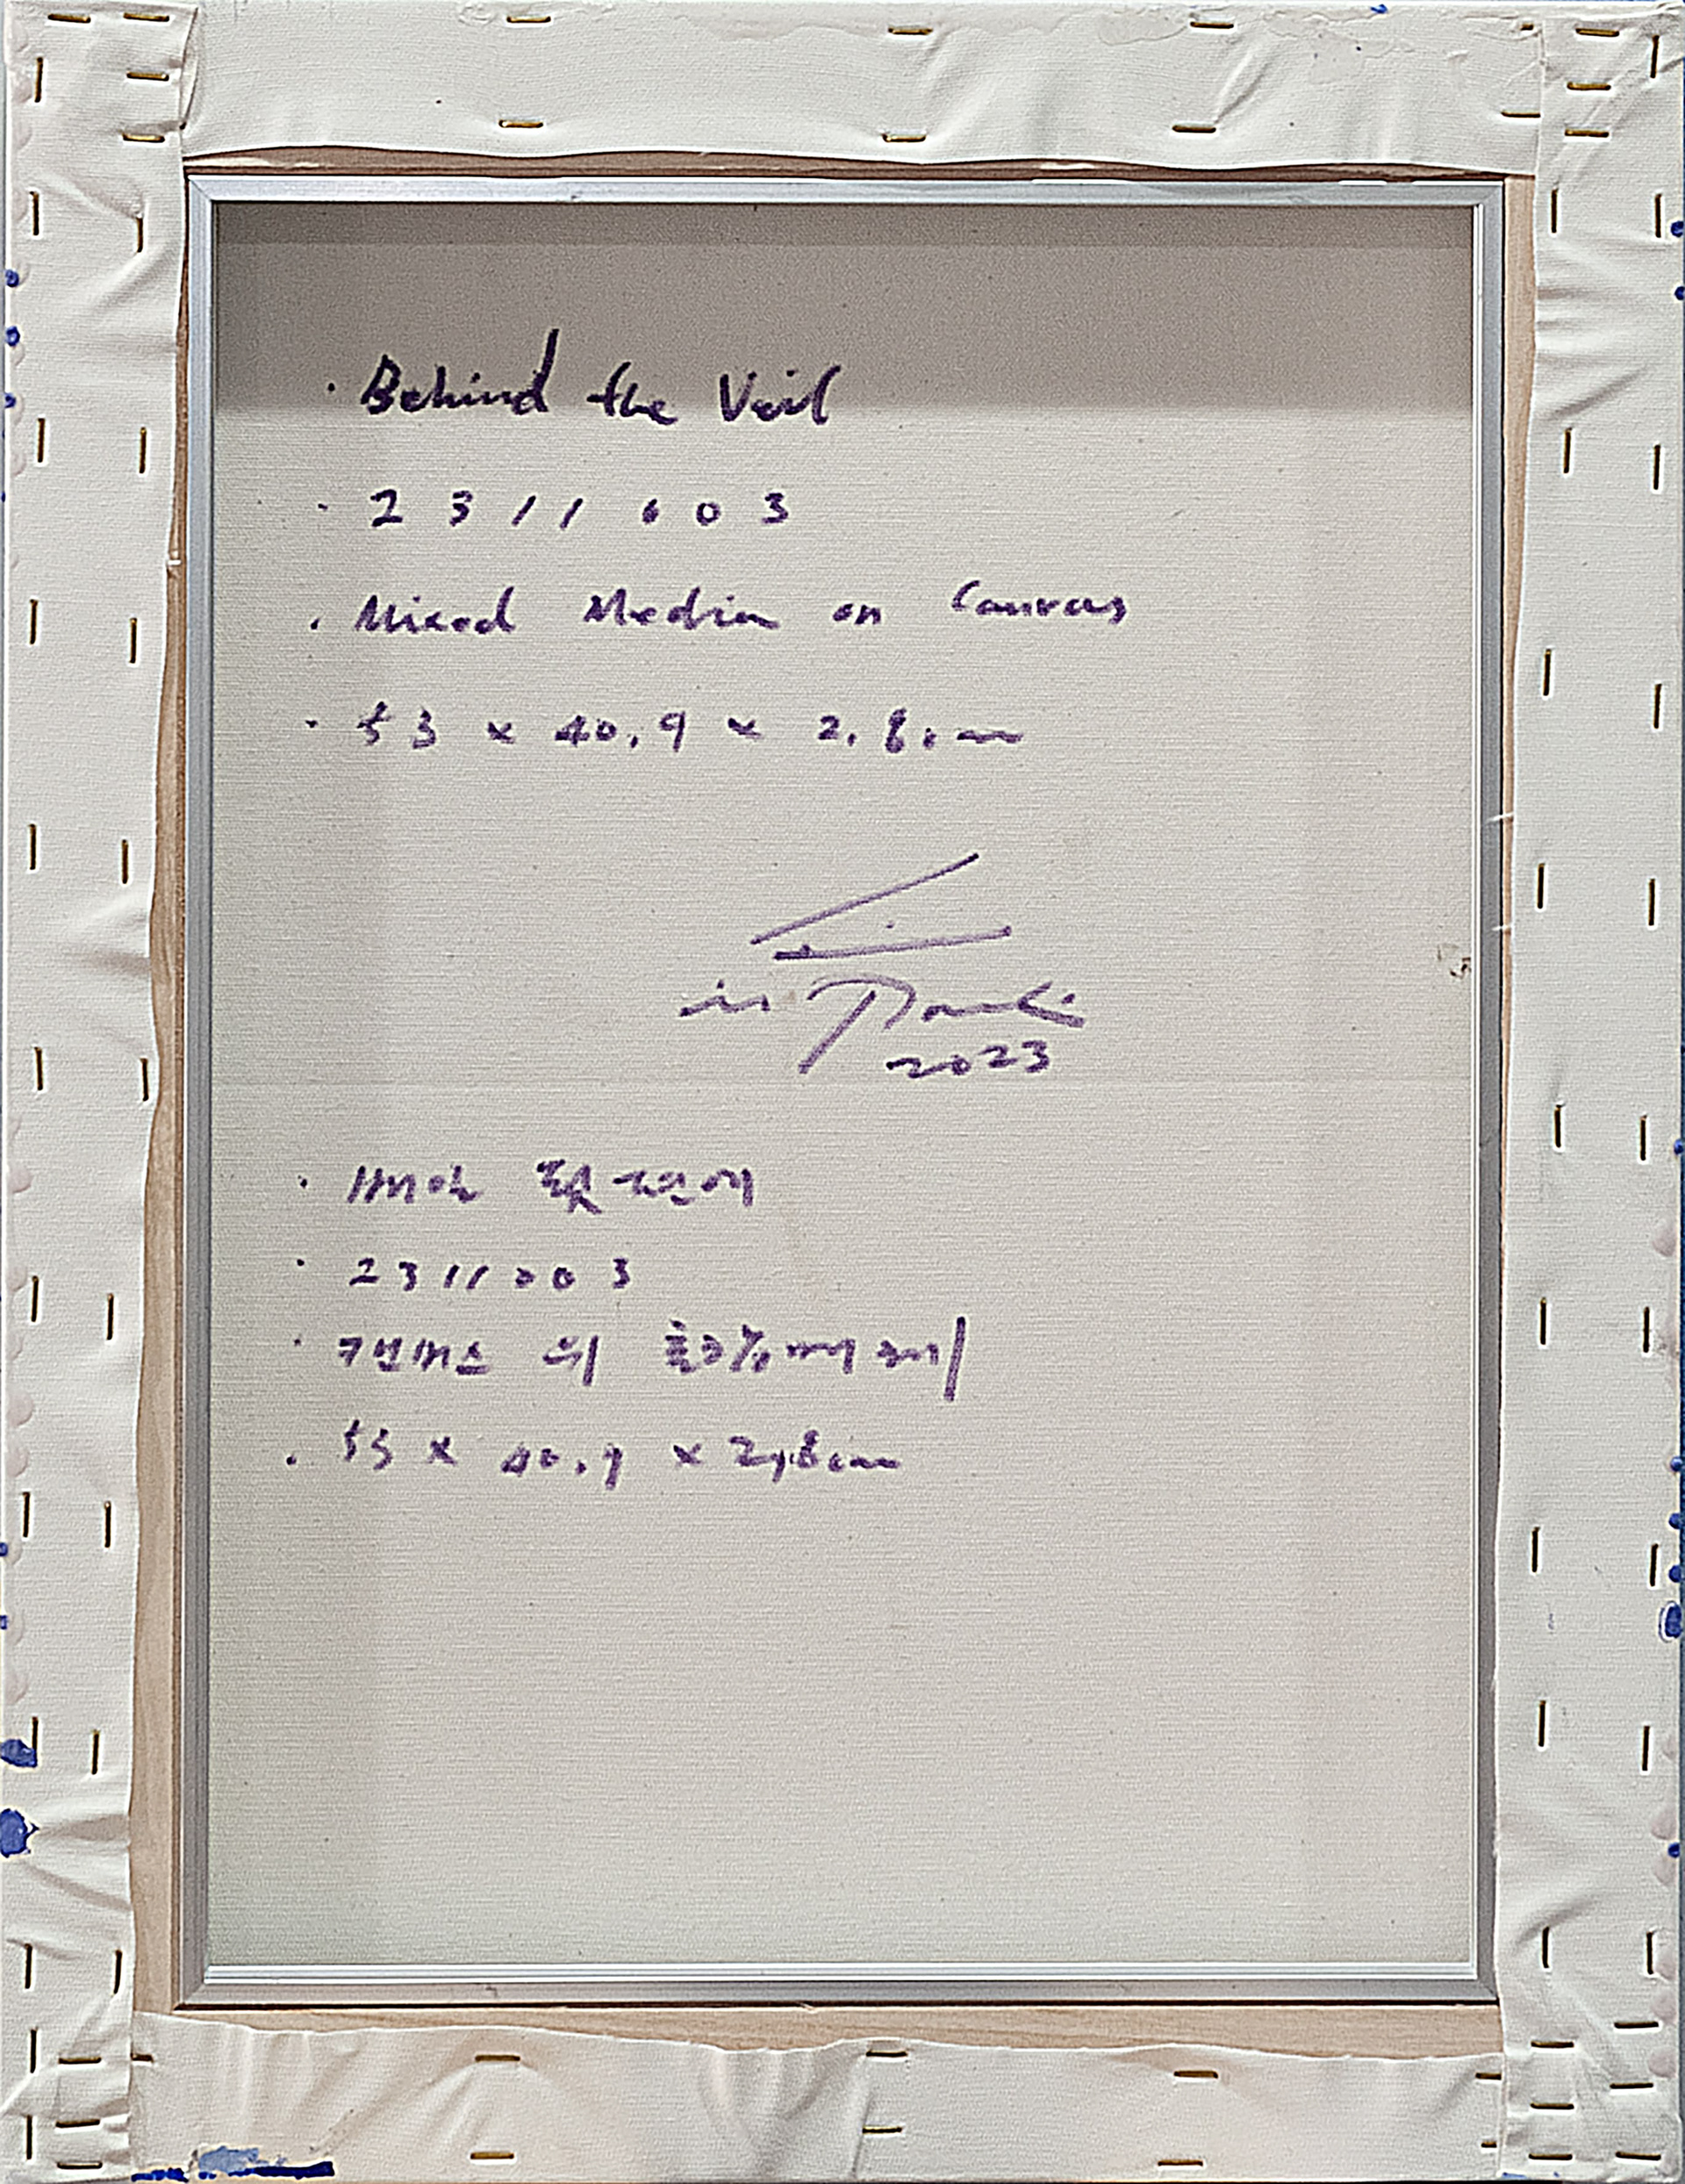 · Behind the Veil
· 2311003
· Mixed Media on Canvas
· 53 x 40.9 x 2.8cm
2023
· 베일
· 2311003
· 캔버스 위 혼합매체
· 53 x 40.9 x 2.8cm